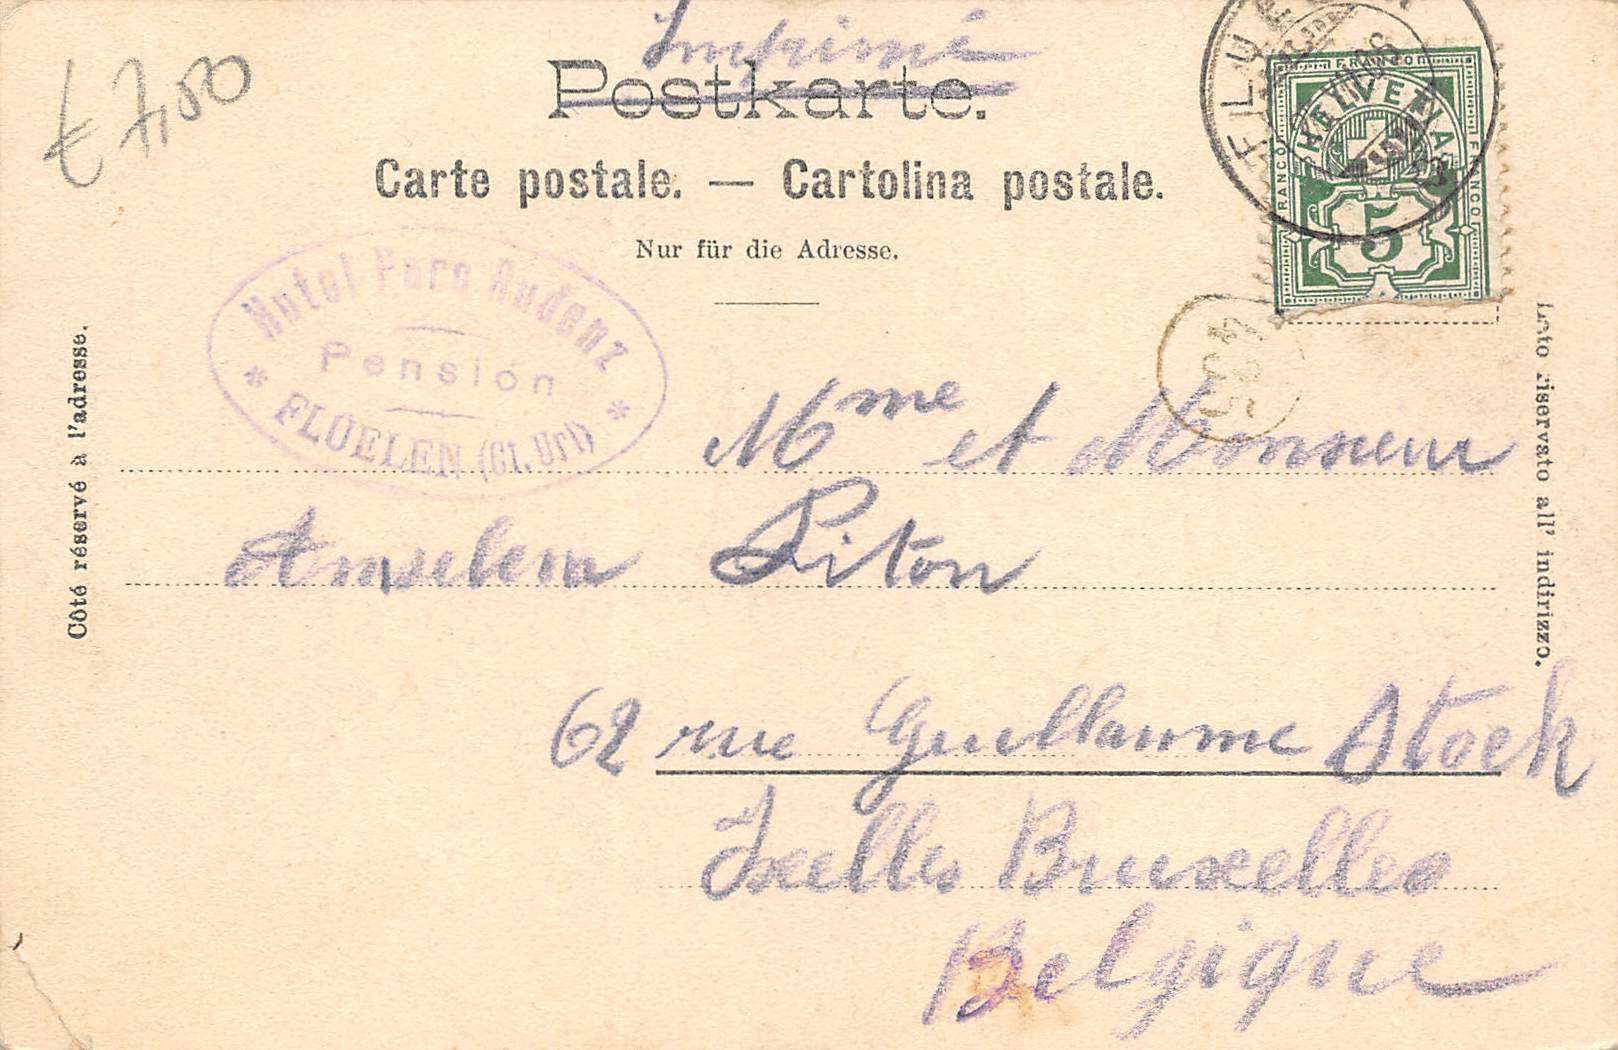 Imprimé
€ 7,50
Postkarte.
Carte postale. — Cartolina postale.
Nur für die Adresse.
FLUELEN
FRANCO
HELVETIA
FRANCO
FRANCO
5
Hotel Parc Rudenz
Pension
* FLÜELEN (Ct. Uri) *
Côté réservé à l'adresse.
Lato riservato all' indirizzo.
Mme et Monsieur
Anselem Piton
62 rue Guillaume Stock
Ixelles Bruxelles
Belgique